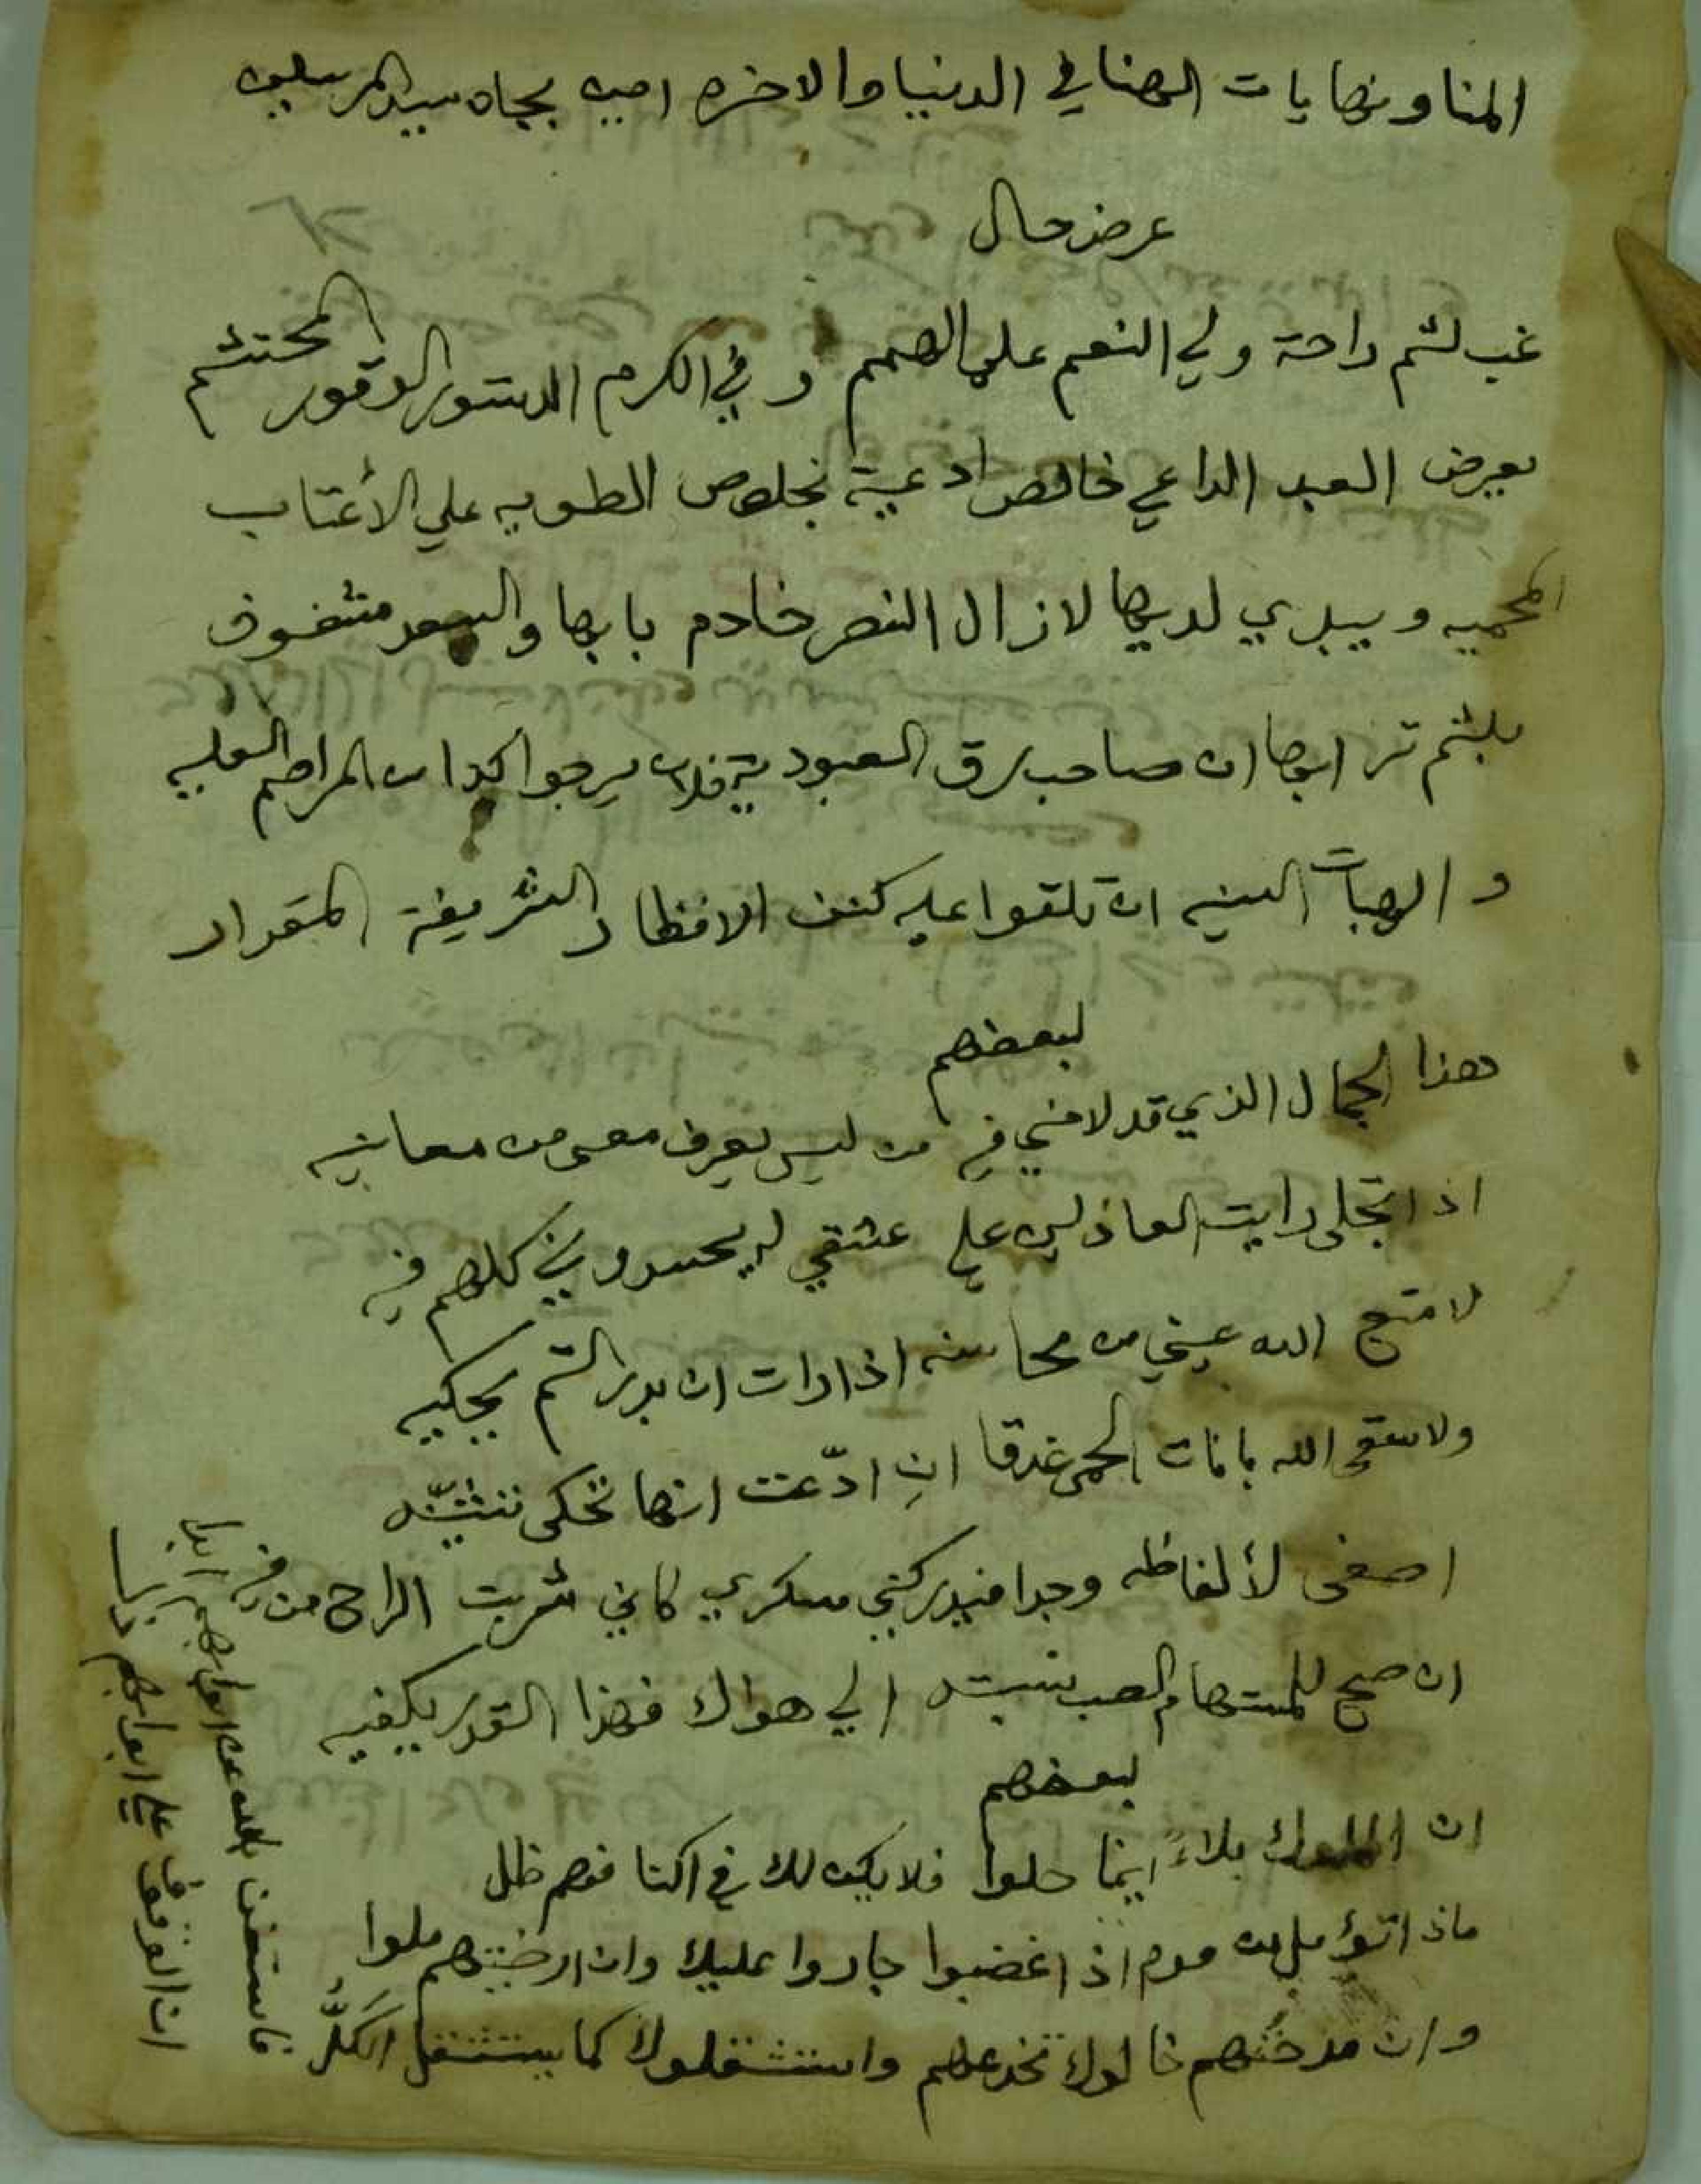 المنا ونهايات الهنا في الدنيا والاخره امين بجاه سيد المرسلين
عرض حال
غب لثم راحة ولي النعم علي الهمم وفي الكرم الدستور الوقور المحتشم
يعرض العبد الداعي خالص ادعية بخلوص الطويه علي الأعتاب
المحميه ويبدي لديها لازال النصر خادم بابها والسعد مشغوف
بلثم ترابها ان صاحب رق العبودية فلان يرجوا من المراحم العليه
والهبات السنيه ان تلقوا عليه كنف الانظار الشريفة المقدار
لبعضهم
هذا الجمال الذي قد لامني فيه من ليس يعرف معنى من معانيه
اذا تجلى رايت العاذلين على عشقي له يحسدوني كلهم فيه
لا متع الله عيني من محاسنه اذا رات ان بدر التم يحكيه
ولا سقى الله بانات الحمى غدقا ان ادّعت انها تحكى تثنّيه
اصغى لألفاظه وجدا فيدركني سكري كاني شربت الراح من فيه
ان صح للمستهام الصب نسبته الي هواك فهذا القدر يكفيه
لبعضهم
ان الملوك بلاءً اينما حلوا فلا يكن لك في اكنافهم ظل
ماذا تؤمل من قوم اذا غضبوا جاروا عليك وان ارضيتهم ملوا
وان مدحتهم خالوك تخدعهم واستثقلوك كما يستثقل الكَلُّ
فاستغن بالله عن ابوابهم ابدا
ان الوقوف علي ابوابهم ذل